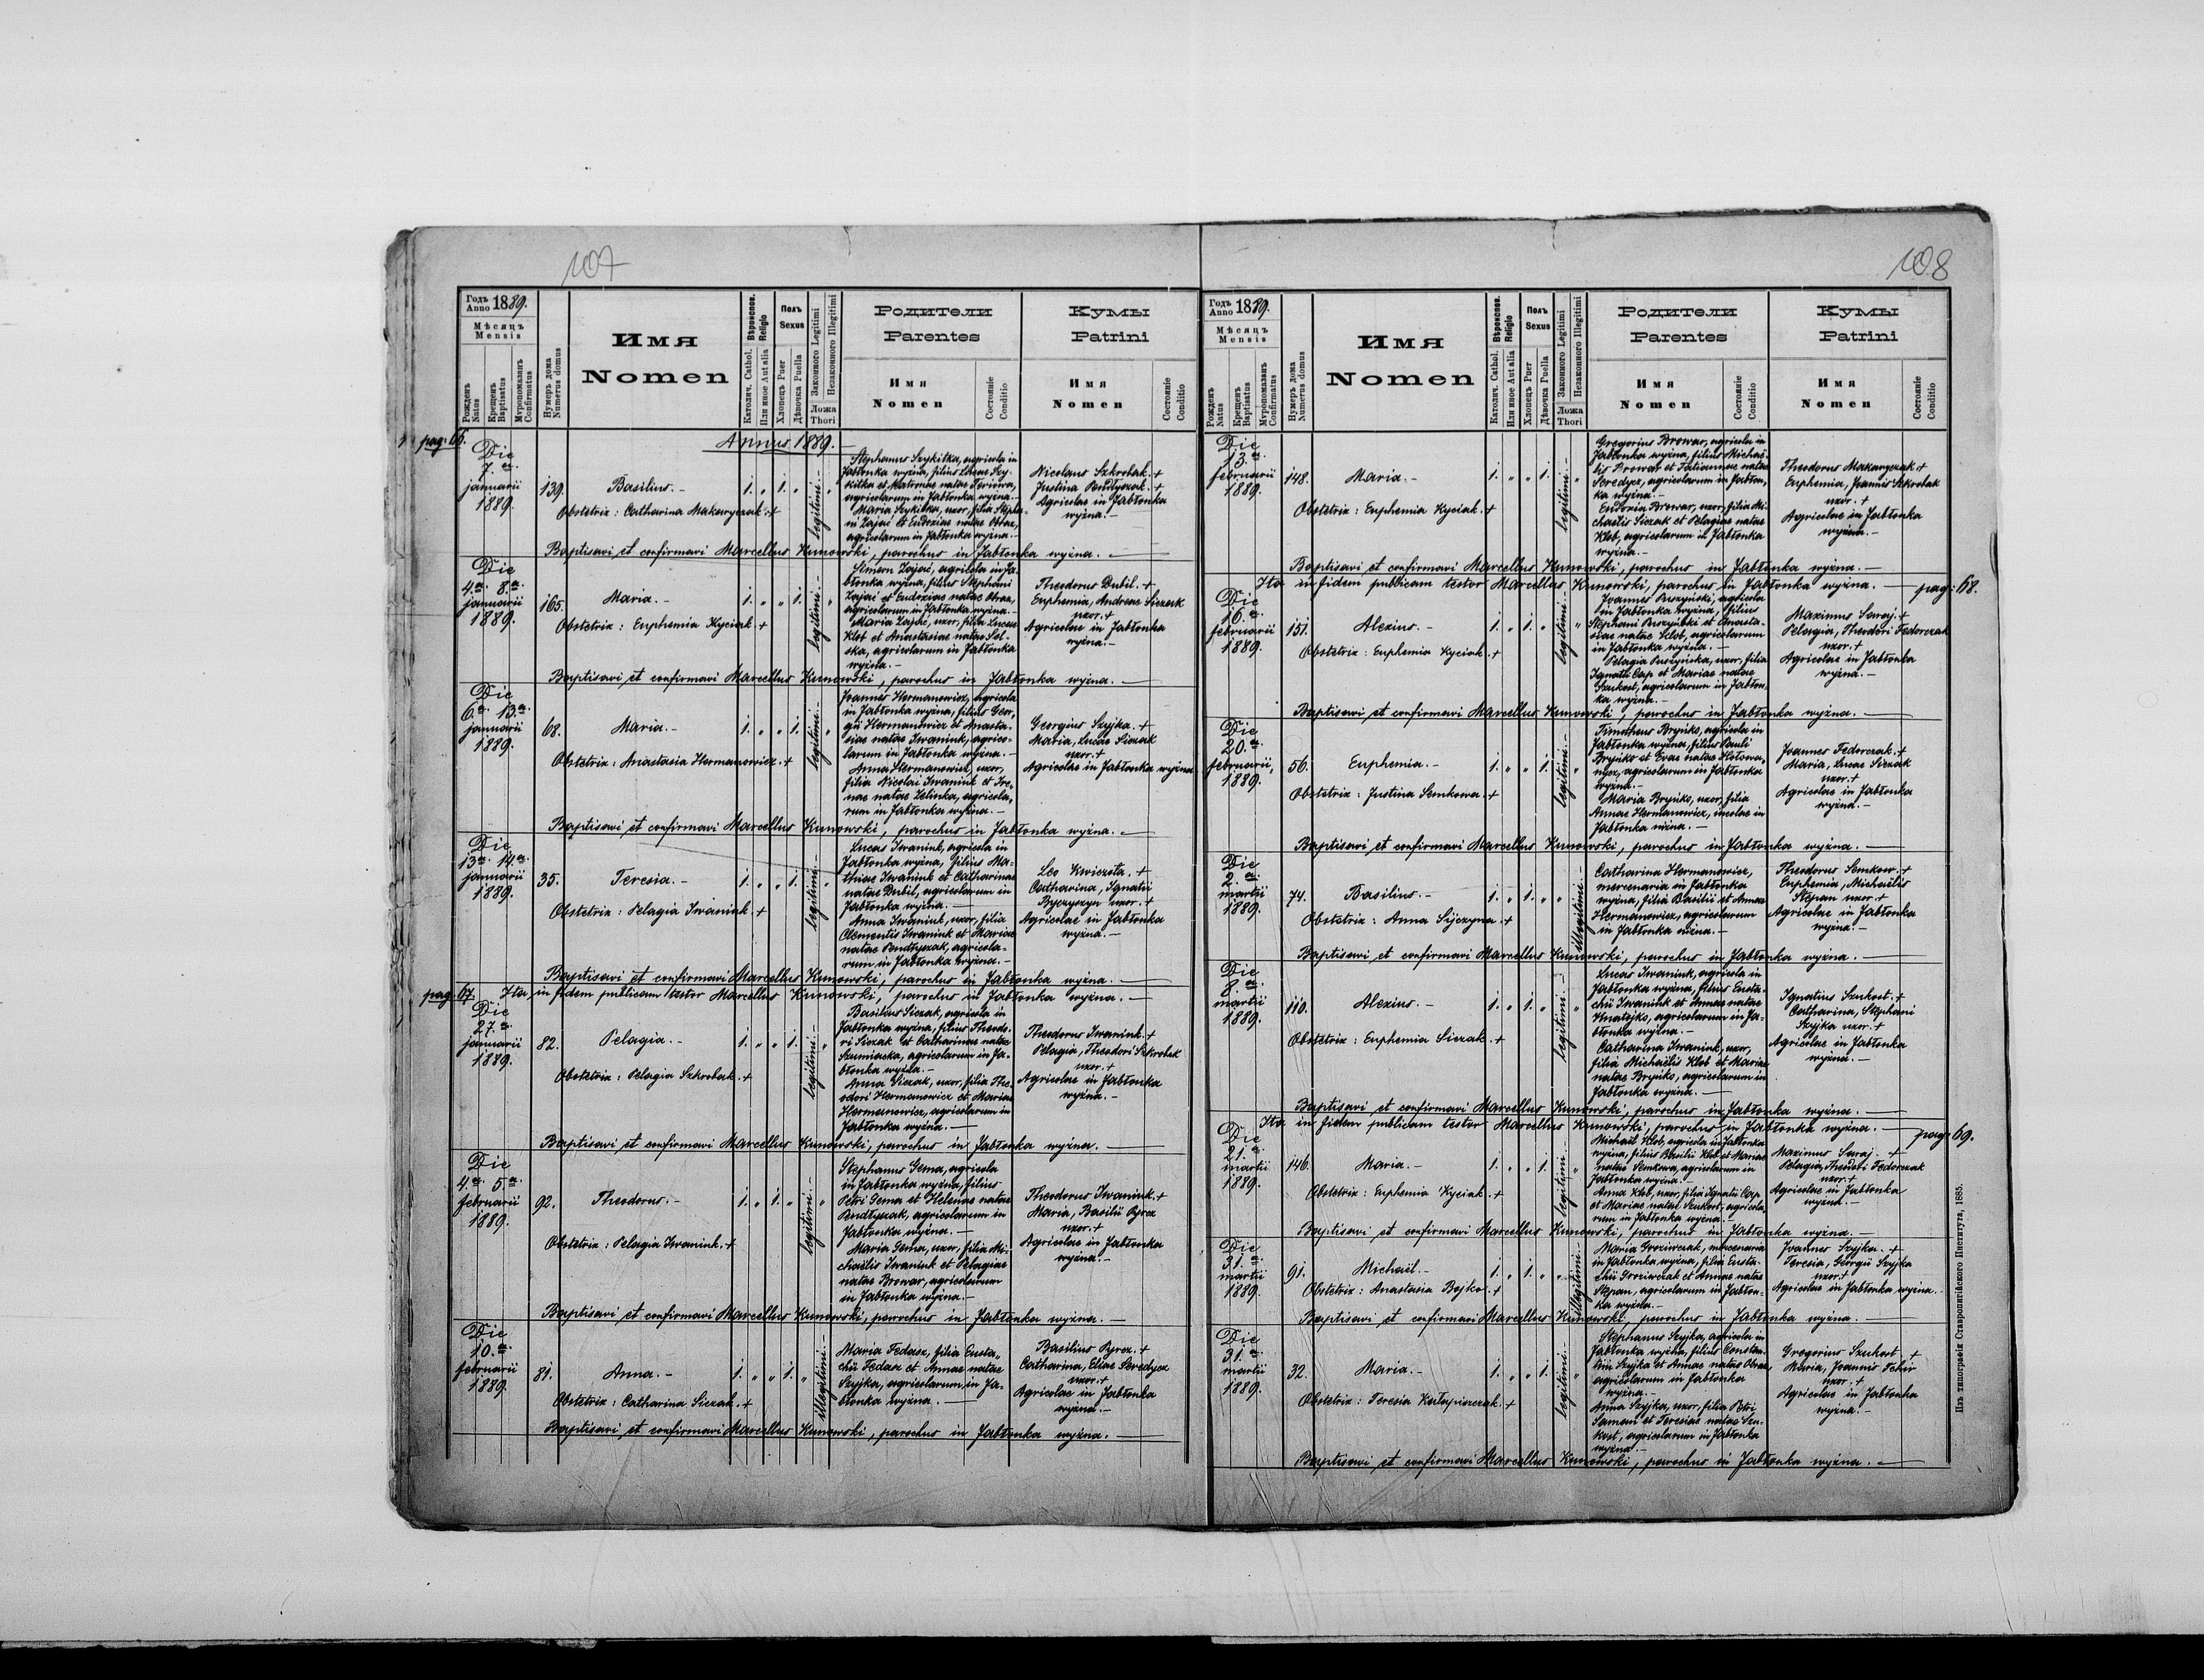 107
Годъ Anno 1889.
Мѣсяцъ
Mensis
Рожденъ Natus
Крещенъ Baptisatus
Мѵропомазанъ Confirmatus
Нумеръ дома Numerus domus
Имя
Nomen
Вѣроиспов. Religio
Католич. Cathol.
Или иное Aut alia
Полъ Sexus
Хлопецъ Puer
Дѣвочка Puella
Законного Legitimi
Незаконного Illegitimi
Ложа
Thori
Родители
Parentes
Имя
Nomen
Состояніе
Conditio
Кумы
Patrini
Имя
Nomen
Состояніе
Conditio
pag: 66.
Annus 1889.
Die
7.a
januarii
1889.
139.
Basilius.-
1. „ 1. „
legitimi.-
Obstetrix: Catharina Makaryczak.+
Stephanus Szykitka, agricola in
Jabłonka wyżna, filius Lucae Szy-
kitka et Matronae natae
agricolarum in Jabłonka wyżna.-
Maria Szykitka, uxor, filia Stepha-
ni Zajać et Eudoxiae natae Obraz,
agricolarum in Jabłonka wyżna.-
Nicolaus Szkrobak.+
Justina Pendłyszak.+
Agricolae in Jabłonka
wyżna.-
Baptisavi et confirmavi Marcellus Kunowski, parochus in Jabłonka wyżna.
Die
4.a 8.a
januarii
1889.
165.
Maria.-
1. „ „ 1.
legitimi.-
Obstetrix: Euphemia Kyciak.+
Simeon Zajać, agricola in Ja-
błonka wyżna, filius Stephani
Zajać et Eudoxiae natae Obraz,
agricolarum in Jabłonka wyżna.-
Maria Zajać, uxor, filia Lucae
Kłeb et Anastasiae natae Sol-
ska, agricolarum in Jabłonka
wyżna.-
Theodorus Dubil.+
Euphemia, Andreae Siczak
uxor.+
Agricolae in Jabłonka
wyżna.-
Baptisavi et confirmavi Marcellus Kunowski, parochus in Jabłonka wyżna.
Die
6.a 13.a
januarii
1889.
68.
Maria.-
1. „ „ 1.
legitimi.-
Obstetrix: Anastasia Hermanowicz.+
Joannes Hermanowicz, agricola
in Jabłonka wyżna, filius Geor-
gii Hermanowicz et Anasta-
siae natae Iwaniuk, agrico-
larum in Jabłonka wyżna.-
Anna Hermanowicz, uxor,
filia Nicolai Iwaniuk et Ire-
nae natae Zelinka, agricola-
rum in Jabłonka wyżna.-
Georgius Szyjka.+
Maria, Lucae Siczak
uxor.+
Agricolae in Jabłonka wyżna
Baptisavi et confirmavi Marcellus Kunowski, parochus in Jabłonka wyżna.
Die
13.a 14.a
januarii
1889.
35.
Teresia.-
1. „ „ 1.
legitimi.-
Obstetrix: Pelagia Iwaniuk.+
Lucas Iwaniuk, agricola in
Jabłonka wyżna, filius Ma-
thiae Iwaniuk et Catharinae
natae Dubil, agricolarum in
Jabłonka wyżna.-
Anna Iwaniuk, uxor, filia
Clementis Iwaniuk et Mariae
natae Pendłyszak, agricola-
rum in Jabłonka wyżna.-
Leo Kwiczata.+
Catharina, Ignatii
Byczyczyn uxor.+
Agricolae in Jabłonka
wyżna.-
Baptisavi et confirmavi Marcellus Kunowski, parochus in Jabłonka wyżna.
pag: 67. Ita in fidem publicam testor Marcellus Kunowski, parochus in Jabłonka wyżna.
Die
27.a
januarii
1889.
82.
Pelagia.-
1. „ „ 1.
legitimi.-
Obstetrix: Pelagia Szkrobak.+
Basilius Siczak, agricola in
Jabłonka wyżna, filius Theodo-
ri Siczak et Catharinae natae
Szumiacka, agricolarum in Ja-
błonka wyżna.-
Anna Siczak, uxor, filia The-
odori Hermanowicz et Mariae
Hermanowicz, agricolarum in
Jabłonka wyżna.-
Theodorus Iwaniuk.+
Pelagia, Theodori Szkrobak
uxor.+
Agricolae in Jabłonka
wyżna.-
Baptisavi et confirmavi Marcellus Kunowski, parochus in Jabłonka wyżna.
Die
4.a 5.a
februarii
1889.
92.
Theodorus.-
1. „ 1. „
legitimi.-
Obstetrix: Pelagia Iwaniuk.+
Stephanus Gema, agricola
in Jabłonka wyżna, filius
Petri Gema et Helenae natae
Pendłyszak, agricolarum in
Jabłonka wyżna.-
Maria Gema, uxor, filia Mi-
chaëlis Iwaniuk et Pelagiae
natae Browar, agricolarum
in Jabłonka wyżna.-
Theodorus Iwaniuk.+
Maria, Basilii Pyrcz
uxor.+
Agricolae in Jabłonka
wyżna.-
Baptisavi et confirmavi Marcellus Kunowski, parochus in Jabłonka wyżna.
Die
10.a
februarii
1889.
81.
Anna.-
1. „ „ 1.
illegitimi.-
Obstetrix: Catharina Siczak.+
Maria Fedasz, filia Eusta-
chii Fedasz et Annae natae
Szyjka, agricolarum in Ja-
błonka wyżna.
Basilius Pyrcz.+
Catharina, Eliae Seredycz
uxor.+
Agricolae in Jabłonka
wyżna.-
Baptisavi et confirmavi Marcellus Kunowski, parochus in Jabłonka wyżna.
108
Годъ Anno 1889.
Мѣсяцъ
Mensis
Рожденъ Natus
Крещенъ Baptisatus
Мѵропомазанъ Confirmatus
Нумеръ дома Numerus domus
Имя
Nomen
Вѣроиспов. Religio
Католич. Cathol.
Или иное Aut alia
Полъ Sexus
Хлопецъ Puer
Дѣвочка Puella
Законного Legitimi
Незаконного Illegitimi
Ложа
Thori
Родители
Parentes
Имя
Nomen
Состояніе
Conditio
Кумы
Patrini
Имя
Nomen
Состояніе
Conditio
Die
13.a
februarii
1889.
148.
Maria.-
1. „ „ 1.
legitimi.-
Obstetrix: Euphemia Kyciak.+
Gregorius Browar, agricola in
Jabłonka wyżna, filius Michaë-
lis Browar et Tatiannae natae
Seredycz, agricolarum in Jabłon-
ka wyżna.-
Eudoxia Browar, uxor, filia Mi-
chaëlis Siczak et Pelagiae natae
Kłeb, agricolarum in Jabłonka
wyżna.-
Theodorus Makaryczak.+
Euphemia, Joannis Szkrobak
uxor.+
Agricolae in Jabłonka
wyżna.-
Baptisavi et confirmavi Marcellus Kunowski, parochus in Jabłonka wyżna.-
Ita in fidem publicam testor Marcellus Kunowski, parochus in Jabłonka wyżna. pag: 68.
Die
16.a
februarii
1889.
151.
Alexius.-
1. „ 1. „
legitimi.-
Obstetrix: Euphemia Kyciak.+
Joannes Puszyński, agricola
in Jabłonka wyżna, filius
Stephani Puszyński et Anasta-
siae natae Kłeb, agricolarum
in Jabłonka wyżna.-
Pelagia Puszyńska, uxor, filia
Ignatii Cap et Mariae natae
Szukost, agricolarum in Jabłon-
ka wyżna.-
Maximus Saraj.+
Pelagia, Theodori Fedorczak
uxor.+
Agricolae in Jabłonka
wyżna.-
Baptisavi et confirmavi Marcellus Kunowski, parochus in Jabłonka wyżna.
Die
20.a
februarii,
1889.
56.
Euphemia.-
1. „ „ 1.
legitimi.-
Obstetrix: Justina Semkowa.+
Timotheus Bryńko, agricola in
Jabłonka wyżna, filius Pauli
Bryńko et Evae natae Hołowa-
nycz, agricolarum in Jabłonka
wyżna.-
Maria Bryńko, uxor, filia
Annae Hermanowicz, incolae in
Jabłonka niżna.-
Joannes Fedorczak.+
Maria, Lucae Siczak
uxor.+
Agricolae in Jabłonka
wyżna.-
Baptisavi et confirmavi Marcellus Kunowski, parochus in Jabłonka wyżna.
Die
2.a
martii
1889.
74.
Basilius.-
1. „ 1. „
illegitimi.-
Obstetrix: Anna Syczyna.+
Catharina Hermanowicz,
mercenaria in Jabłonka
wyżna, filia Basilii et Annae
Hermanowicz, agricolarum
in Jabłonka niżna.-
Theodorus Semkow.+
Euphemia, Michaëlis
Stepan uxor.+
Agricolae in Jabłonka
wyżna.-
Baptisavi et confirmavi Marcellus Kunowski, parochus in Jabłonka wyżna.
Die
8.a
martii
1889.
110.
Alexius.-
1. „ 1. „
legitimi.-
Obstetrix: Euphemia Siczak.+
Lucas Iwaniuk, agricola in
Jabłonka wyżna, filius Eusta-
chii Iwaniuk et Annae natae
Hnatejko, agricolarum in Ja-
błonka wyżna.-
Catharina Iwaniuk, uxor,
filia Michaëlis Kłeb et Mariae
natae Bryńko, agricolarum in
Jabłonka wyżna.-
Ignatius Szukost.+
Catharina, Stephani
Szyjka uxor.+
Agricolae in Jabłonka
wyżna.-
Baptisavi et confirmavi Marcellus Kunowski, parochus in Jabłonka wyżna.
Ita in fidem publicam testor Marcellus Kunowski, parochus in Jabłonka wyżna. pag: 69.
Die
21.a
martii
1889.
146.
Maria.-
1. „ „ 1.
legitimi.-
Obstetrix: Euphemia Kyciak.+
Michaël Kłeb, agricola in Jabłonka
wyżna, filius Basilii Kłeb et Mariae
natae Semkowa, agricolarum in
Jabłonka wyżna.-
Anna Kłeb, uxor, filia Ignatii Cap
et Mariae natae Szukost, agricola-
rum in Jabłonka wyżna.-
Maximus Saraj.+
Pelagia, Theodori Fedorczak
uxor.+
Agricolae in Jabłonka
wyżna.-
Baptisavi et confirmavi Marcellus Kunowski, parochus in Jabłonka wyżna.-
Die
31.a
martii
1889.
91.
Michaël.-
1. „ 1. „
illegitimi.-
Obstetrix: Anastasia Bojko.+
Maria mercenaria
in Jabłonka wyżna, filia Eusta-
chii et Annae natae
Stepan, agricolarum in Jabłon-
ka wyżna.-
Joannes Szyjka.+
Teresia, Georgii Szyjka
uxor.+
Agricolae in Jabłonka wyżna.-
Baptisavi et confirmavi Marcellus Kunowski, parochus in Jabłonka wyżna.
Die
31.a
martii
1889.
32.
Maria.-
1. „ „ 1.
legitimi.-
Obstetrix: Teresia
Stephanus Szyjka, agricola in
Jabłonka wyżna, filius Constan-
tini Szyjka et Annae natae Obraz,
agricolarum in Jabłonka
wyżna.-
Anna Szyjka, uxor, filia Petri
et Teresiae natae Szu-
kost, agricolarum in Jabłonka
wyżna.-
Gregorius Szukost.+
Maria, Joannis
uxor.+
Agricolae in Jabłonka
wyżna.-
Baptisavi et confirmavi Marcellus Kunowski, parochus in Jabłonka wyżna.
Изъ типографіи Ставропигійского Института, 1885.